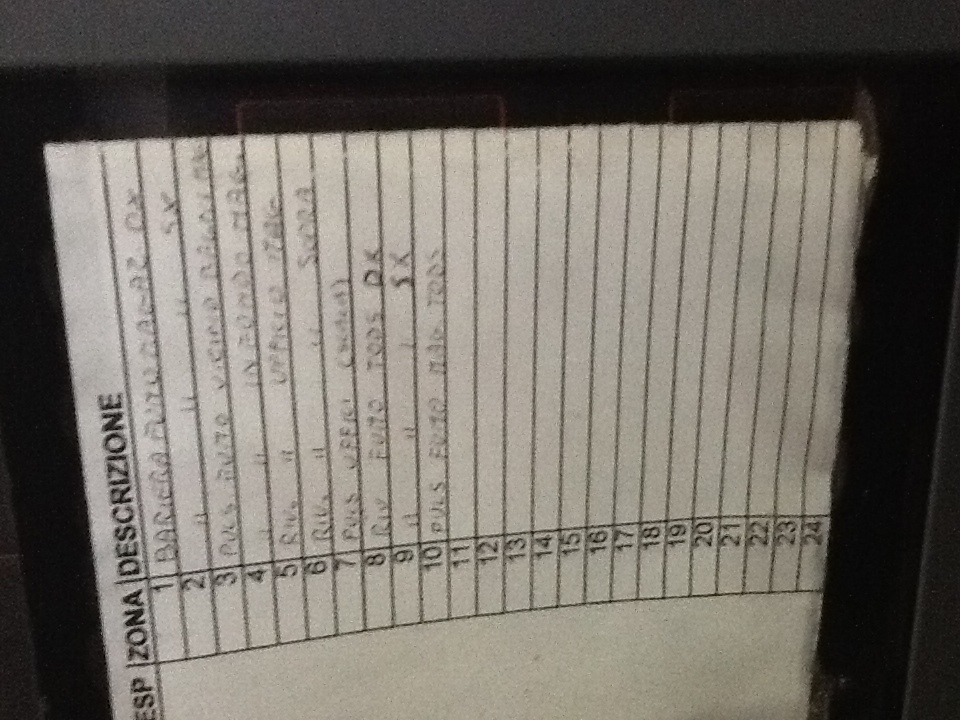 ESP ZONA DESCRIZIONE
1 BARIERA AUTO MAGAZ DX
2 " " " SX
3 PULS AUTO VICINO
4 " " IN FONDO MAG.
5 RIV. " UFFICIO MAG.
6 RIV. " " SOPRA
7 PULS UFFICI
8 RIV FUMO TODS DX
9 " " " SX
10 PULS FUMO MAG TODS
11
12
13
14
15
16
17
18
19
20
21
22
23
24